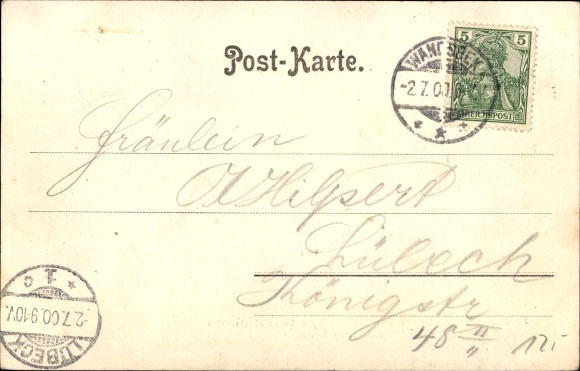 Post-Karte.
WANDSBEK
-2.7.0
5 5
REICHSPOST
Fräulein
A Hilpert
Lübeck
Königstr
48 II
12.-
LÜBECK
-2.7.00.9-10V.
1 c